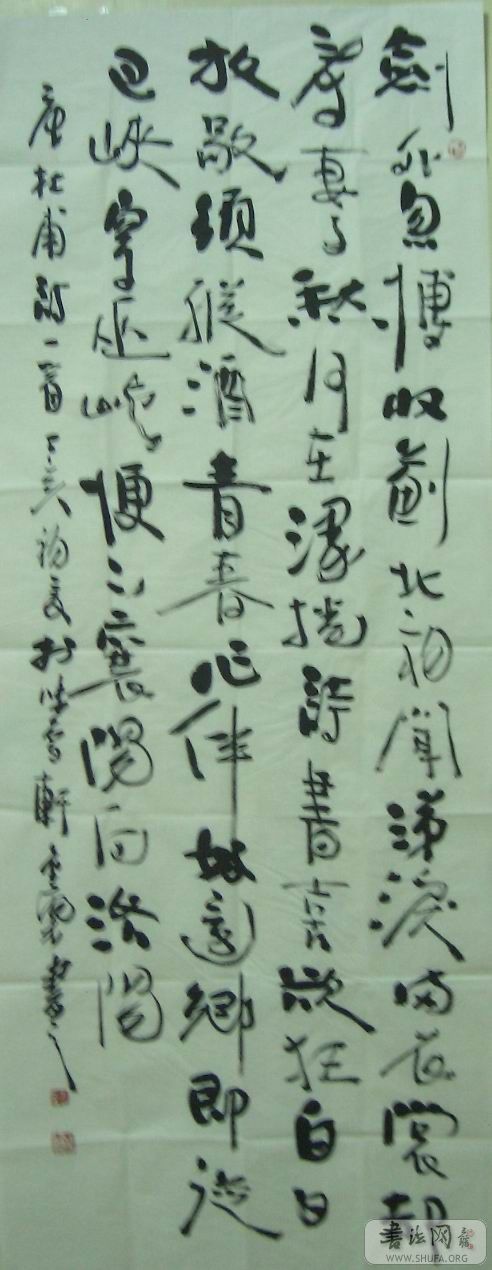 劍外忽傳收薊北初聞涕淚滿衣裳却
看妻子愁何在漫捲詩書喜欲狂白日
放歌須縱酒青春作伴好還鄉即從
巴峽穿巫峽便下襄陽向洛陽
唐杜甫詩一首丁亥初夏於軒書
書法网
WWW.SHUFA.ORG